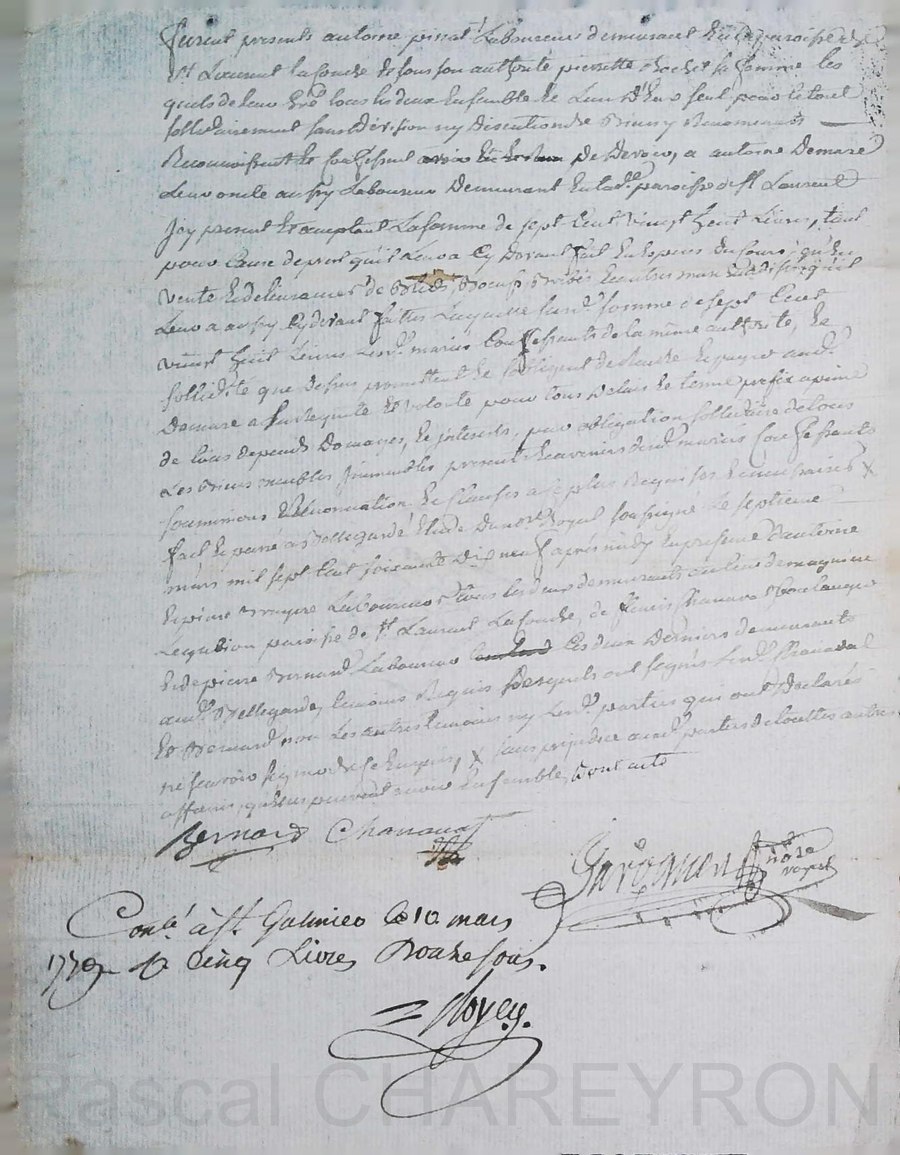 furent presents antoine pinat Laboureur demeurant en la paroisse de
st Laurent lafouche et sous son authorité pierrette Rochet sa femme les
quels de leur gré tous les deux Ensemble et Lun deux seul pour le tout
sollidairement sans division ny discution de Biens y Renonceants
Reconnoissent et confessent de devoir, a antoine Demare
Leur oncle aussy Laboureur Demeurant En lad. paroisse de st Laurent
Icy present et acceptant La somme de sept Cent vingt huit Livres, tant
pour Cause de prest qu'il Leur a Cy devant fait En Especes du Cours, qu'en
vente et delivrance de Bleds Boeufs Brebis et autres marchandises qu'il
Leur a aussy Cy devant faittes Laquelle susd. somme de sept Cent
vingt huit Livres Lesd. mariés Confessants de la même authorité, et
sollidité que dessus promettent et sobligent de Rendre et payer aud.
Demare a sa Requete et volonté pour tous delais et terme prefix a peine
de tous depends Domages, et interests, par obligation sollidaire de tous
Les Biens meubles Immeubles presents et avenirs desd. mariés Confessants
soumissions Renonciations et Clauses a ce plus Requises et necessaires X
fait et passé a Bellegarde Etude du no.re Royal soussigné Le septieme
mars mil sept Cent soixante dix neuf après midy En presence d'antoine
et pierre Bruyere Laboureurs tous les deux demeurants au lieu de
paroisse de st Laurent Lafouche, de Chanavat Boulanger
et de pierre Bernard Laboureur Ces deux Derniers demeurants
aud. Bellegarde, temoins Requis Desquels ont signés Lesd. Chanavat
et Bernard non Les autres temoins ny Lesd. parties qui ont Declarés
ne scavoir signer de ce Enquis X sans prejudice auxd. parties de touttes autres
affaires, quelles peuvent avoir Ensemble, Dont acte
Bernard Chanavat
no.re royal
Con.lé à st Galmier le 10 mars
1779 R Cinq Livres Douze sous.